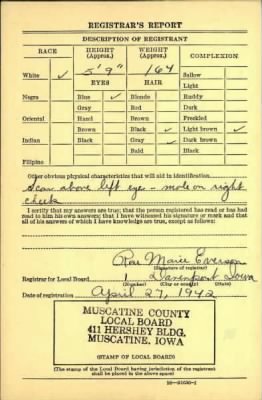 REGISTRAR'S REPORT
DESCRIPTION OF REGISTRANT
RACE HEIGHT (Approx.) WEIGHT (Approx.) COMPLEXION
White ✓ 5' 9" 164 Sallow
EYES HAIR Light
Negro Blue ✓ Blonde Ruddy
Gray Red Dark
Oriental Hazel Brown Freckled
Brown Black ✓ Light brown ✓
Indian Black Gray ✓ Dark brown
Bald Black
Filipino
Other obvious physical characteristics that will aid in identification
Scar above left eye - mole on right
cheek
I certify that my answers are true; that the person registered has read or has had
read to him his own answers; that I have witnessed his signature or mark and that
all of his answers of which I have knowledge are true, except as follows:
Rose Marie Everson
(Signature of registrar)
Registrar for Local Board Davenport Iowa
(Number) (City or county) (State)
Date of registration April 27, 1942
MUSCATINE COUNTY
LOCAL BOARD
411 HERSHEY BLDG.
MUSCATINE, IOWA
(STAMP OF LOCAL BOARD)
(The stamp of the Local Board having jurisdiction of the registrant
shall be placed in the above space)